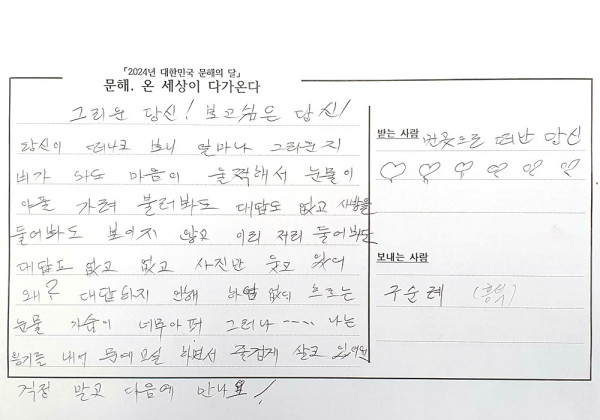 「2024년 대한민국 문해의 달」
문해. 온 세상이 다가온다
그리운 당신! 보고싶은 당신!
당신이 떠나고 보니 얼마나 그리운지
비가 와도 마음이 울적해서 눈물이
앞을 가려 불러봐도 대답도 없고 사방을
둘어봐도 보이지 않고 이리 저리 둘어봐도
대답도 없고 없고 사진만 웃고 있어
왜? 대답하지 안해 하염 없이 흐르는
눈물 가슴이 너무아퍼 그러나 ---- 나는
용기를 내어 문예교실 하면서 즐겁게 살고 있어요
걱정 말고 다음에 만나요!
받는 사람 먼곳으로 떠난 당신
♡ ♡ ♡ ♡ ♡ ♡
보내는 사람
구순례 (흥부)